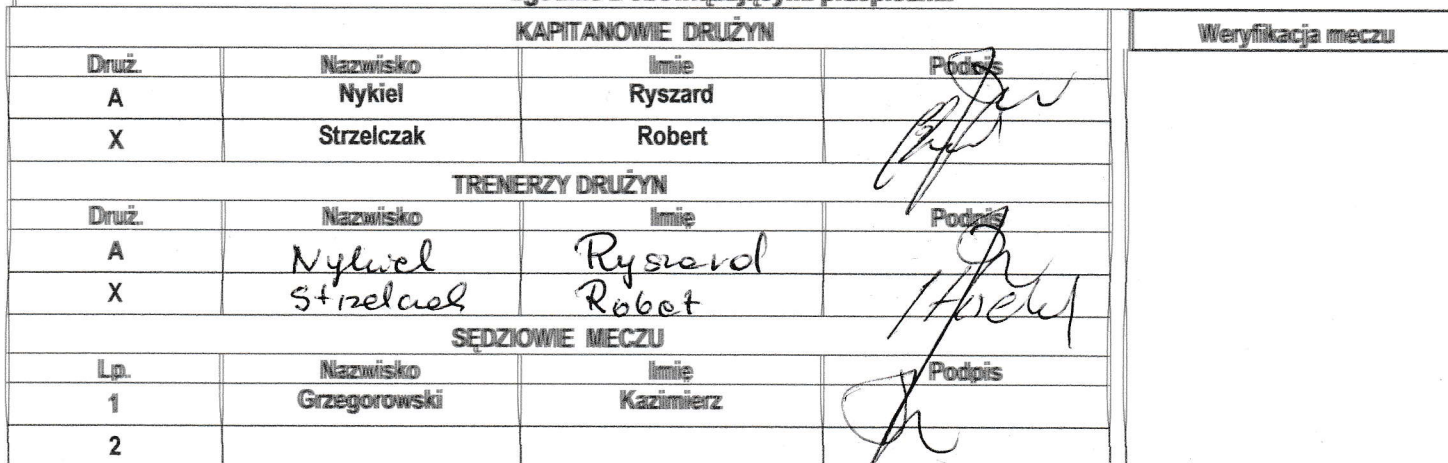 KAPITANOWIE DRUŻYN
Weryfikacja meczu
Druż. Nazwisko Imię Podpis
A Nykiel Ryszard
X Strzelczak Robert
TRENERZY DRUŻYN
Druż. Nazwisko Imię Podpis
A Nykiel Ryszard
X Strzelczak Robet
SĘDZIOWIE MECZU
Lp. Nazwisko Imię Podpis
1 Grzegorowski Kazimierz
2